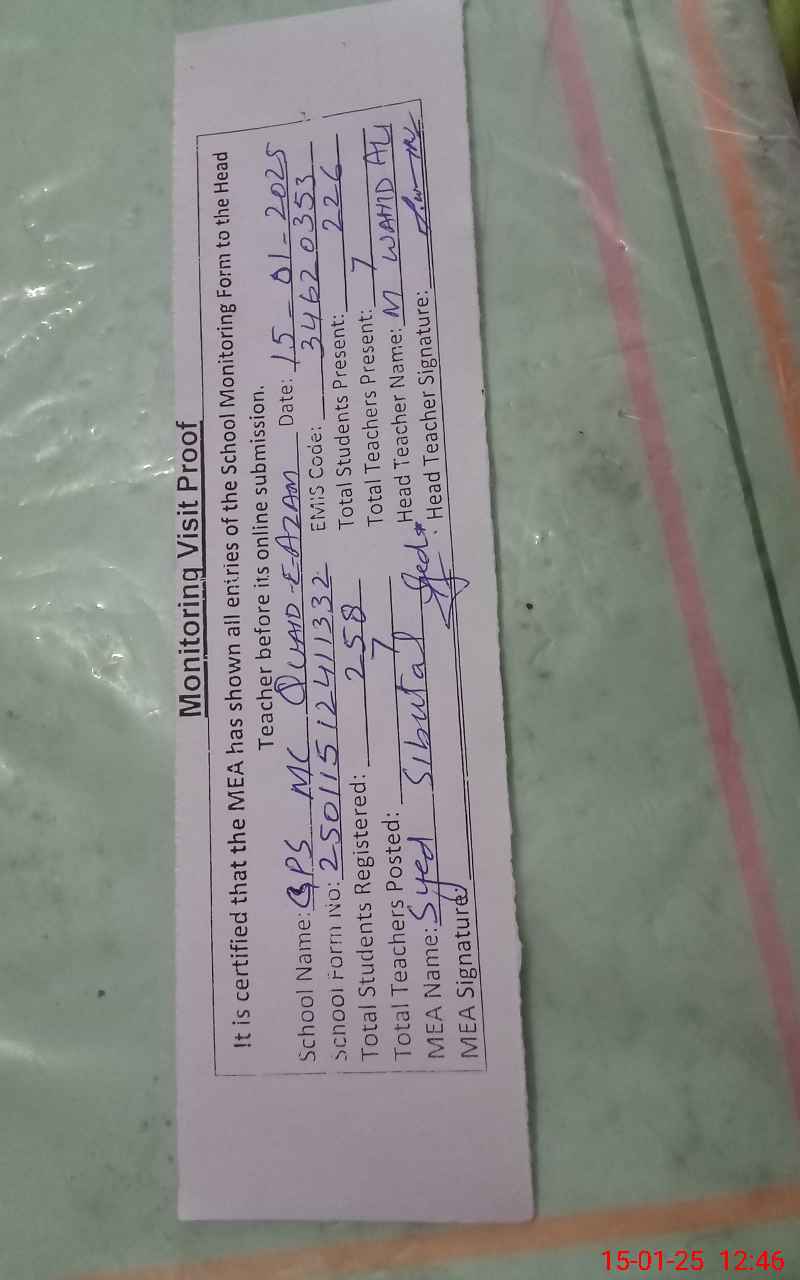 Monitoring Visit Proof
It is certified that the MEA has shown all entries of the School Monitoring Form to the Head
Teacher before its online submission.
School Name: GPS MC QUAID-E-AZAM Date: 15-01-2025
School Form No: 25011512411332 EMIS Code: 34620353
Total Students Registered: 258 Total Students Present: 226
Total Teachers Posted: 7 Total Teachers Present: 7
MEA Name: Syed Sibutal Head Teacher Name: M WAHID ALI
MEA Signature: Head Teacher Signature:
15-01-25 12:46